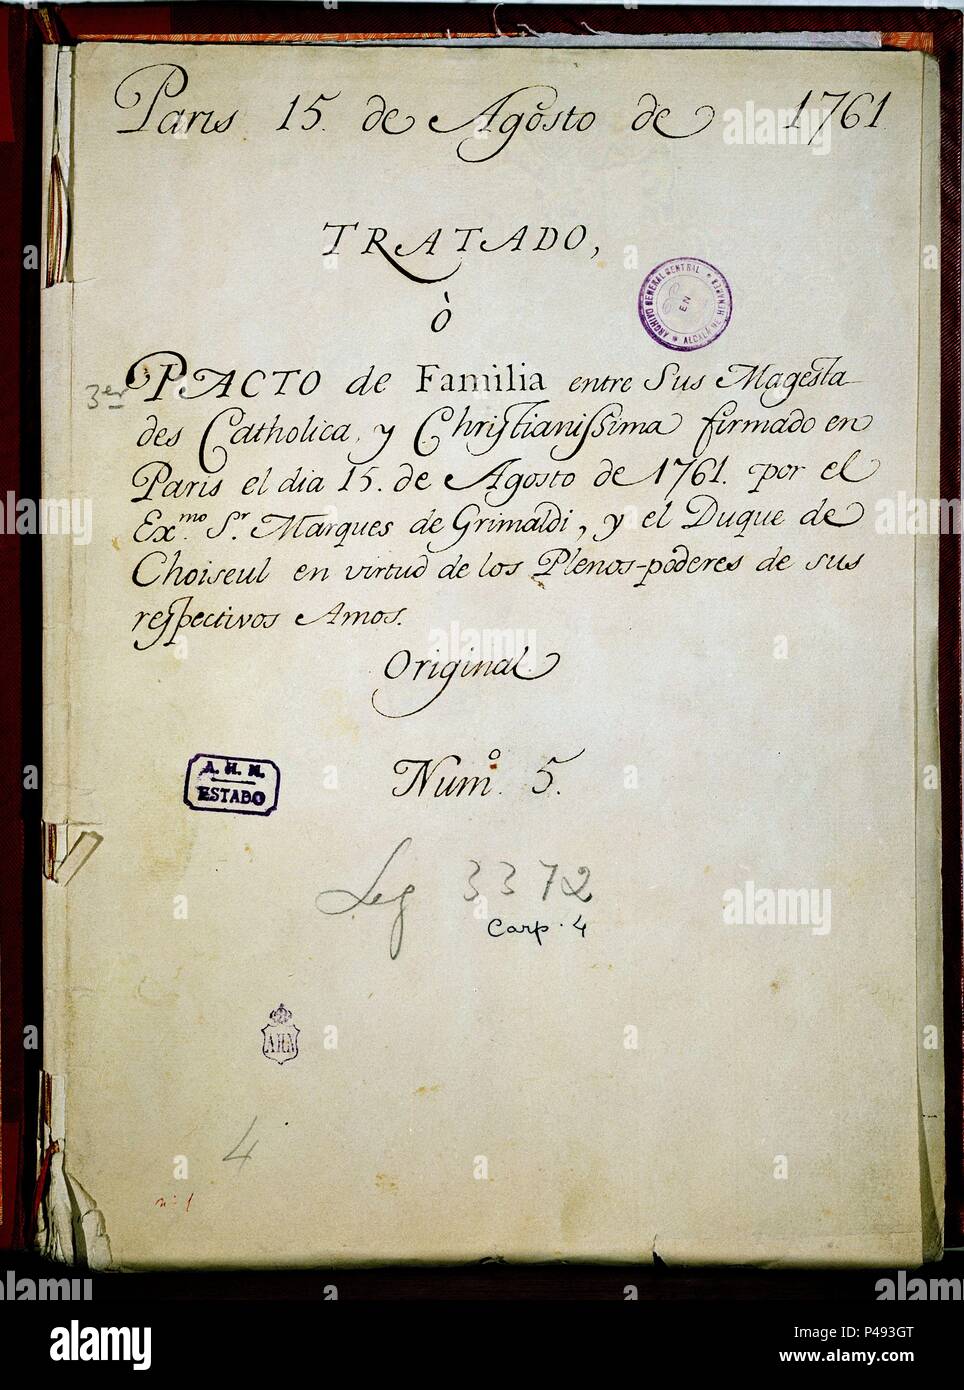 Paris 15. de Agosto de 1761
TRATADO,
ò
3er PACTO de Familia entre Sus Magesta-
des Catholica, y Christianissima firmado en
Paris el dia 15. de Agosto de 1761. por el
Ex.mo Sr. Marques de Grimaldi, y el Duque de
Choiseul en virtud de los Plenos-poderes de sus
respectivos Amos.
Original
Num.o 5.
ARCHIVO GENERAL CENTRAL * EN * ALCALA DE HENARES
A. H. N.
ESTADO
Leg 3372
Carp. 4
AHN
4
nº 1
alamy
Image ID: P493GT
www.alamy.com